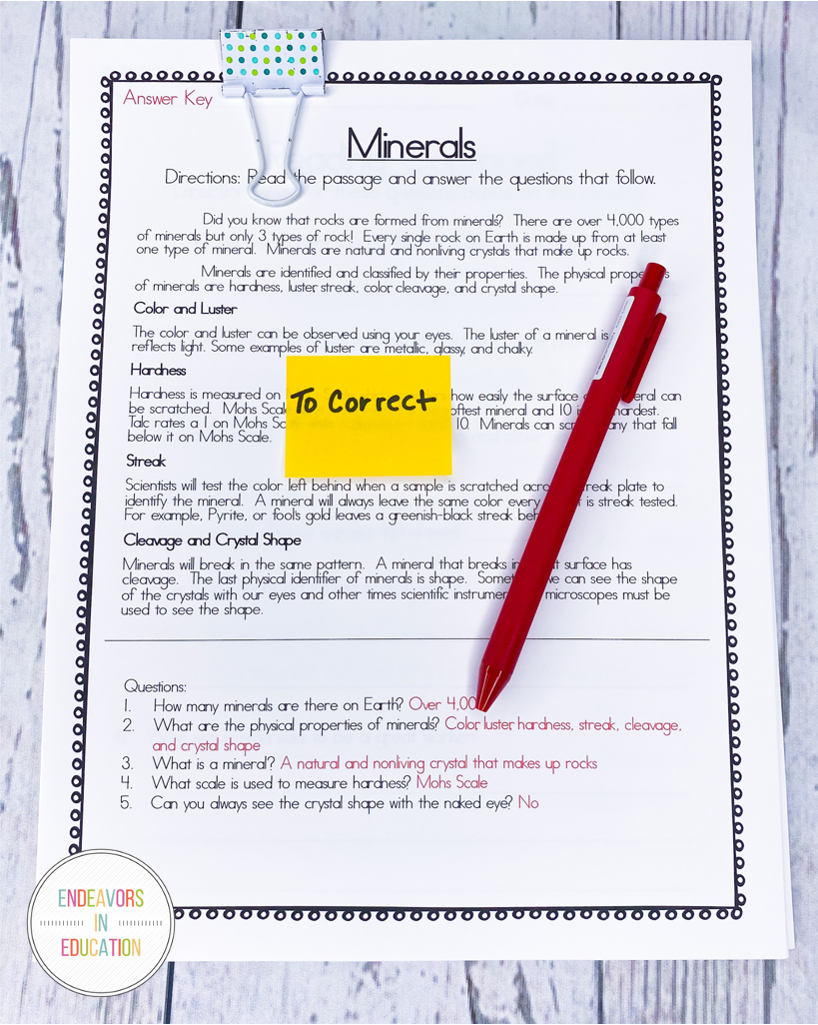 Answer Key
Minerals
Directions: Read the passage and answer the questions that follow.
Did you know that rocks are formed from minerals? There are over 4,000 types
of minerals but only 3 types of rock! Every single rock on Earth is made up from at least
one type of mineral. Minerals are natural and nonliving crystals that make up rocks.
Minerals are identified and classified by their properties. The physical
of minerals are hardness, luster streak, color cleavage, and crystal shape.
Color and Luster
The color and luster can be observed using your eyes. The luster of a mineral is
reflects light. Some examples of luster are metallic, glassy, and chalky.
Hardness
Hardness is measured on how easily the surface can
be scratched. Mohs mineral and 10 hardest.
Talc rates a 1 on Mohs 10. Minerals can any that fall
below it on Mohs Scale.
To Correct
Streak
Scientists will test the color left behind when a sample is scratched plate to
identify the mineral. A mineral will always leave the same color every is streak tested.
For example, Pyrite, or fool's gold leaves a greenish-black streak
Cleavage and Crystal Shape
Minerals will break in the same pattern. A mineral that breaks surface has
cleavage. The last physical identifier of minerals is shape. we can see the shape
of the crystals with our eyes and other times scientific microscopes must be
used to see the shape.
Questions:
1. How many minerals are there on Earth? Over
2. What are the physical properties of minerals? Color luster hardness, streak, cleavage,
and crystal shape
3. What is a mineral? A natural and nonliving crystal that makes up rocks
4. What scale is used to measure hardness? Mohs Scale
5. Can you always see the crystal shape with the naked eye? No
ENDEAVORS
IN
EDUCATION